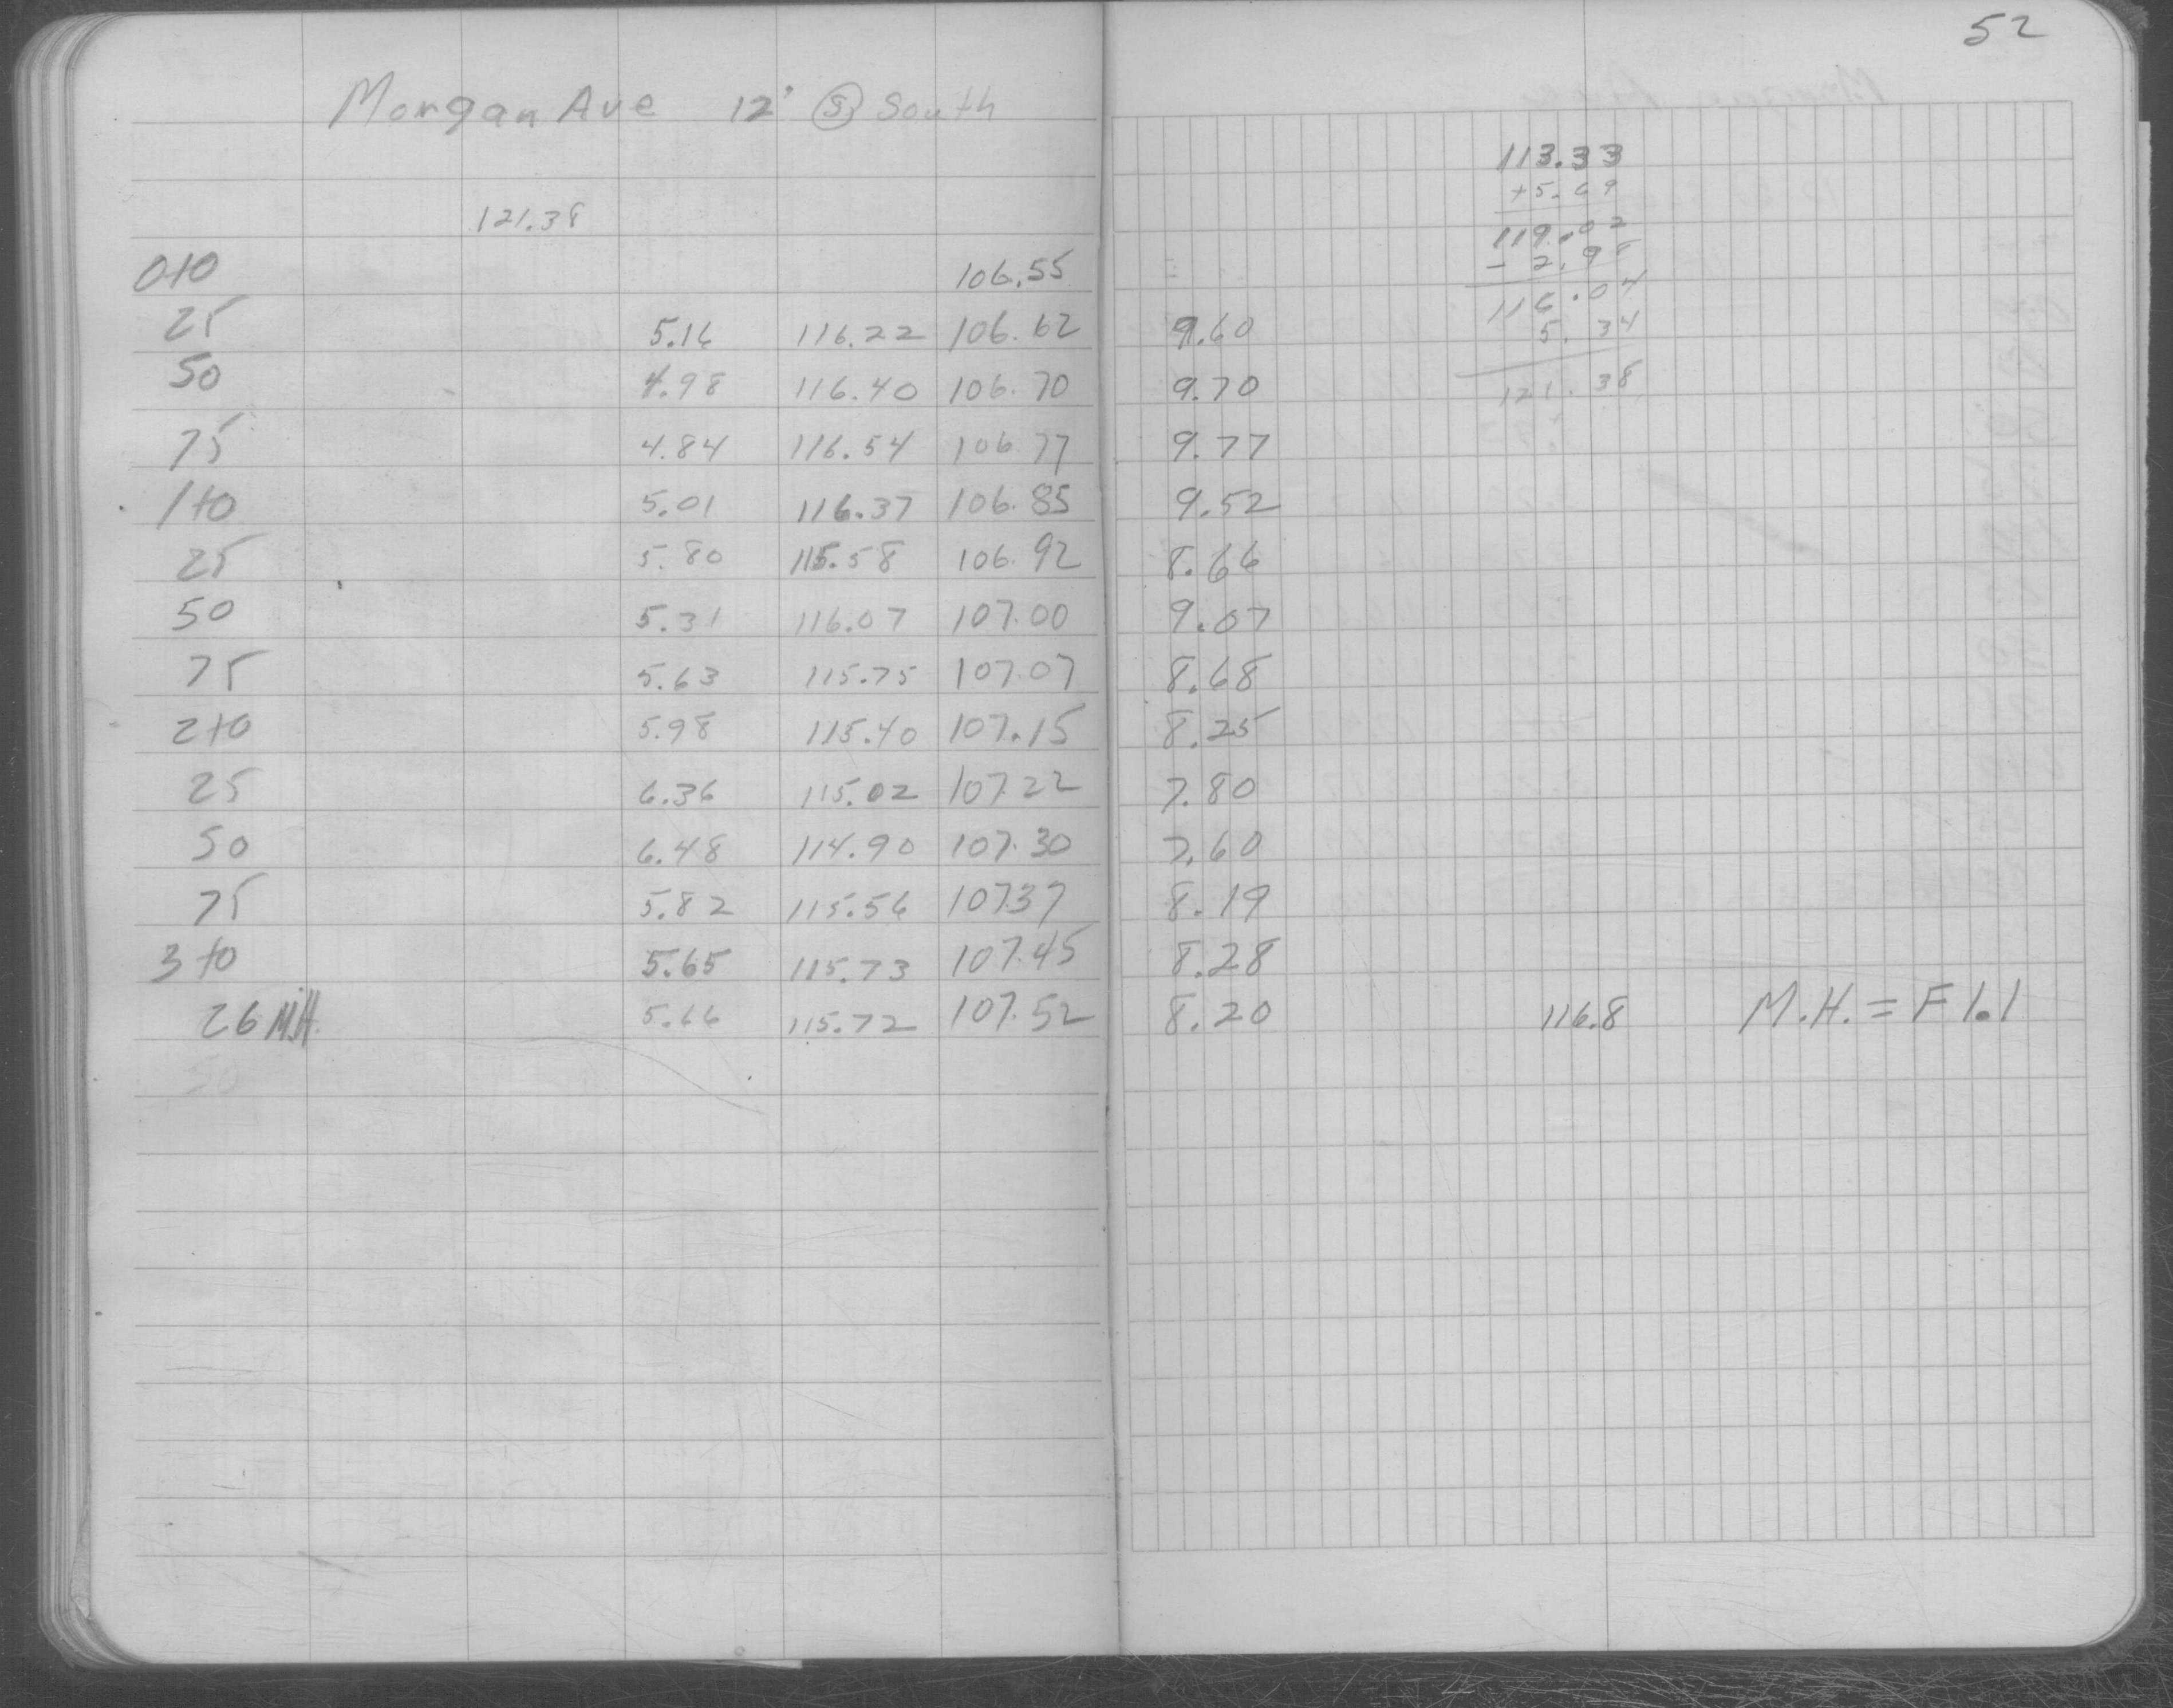 52
Morgan Ave 12' Ⓢ South
121.38
0+0 106.55
25 5.16 116.22 106.62 9.60
50 4.98 116.40 106.70 9.70
75 4.84 116.54 106.77 9.77
1+0 5.01 116.37 106.85 9.52
25 5.80 115.58 106.92 8.66
50 5.31 116.07 107.00 9.07
75 5.63 115.75 107.07 8.68
2+0 5.98 115.40 107.15 8.25
25 6.36 115.02 107.22 7.80
50 6.48 114.90 107.30 7.60
75 5.82 115.56 10737 8.19
3+0 5.65 115.73 107.45 8.28
26 M.H. 5.66 115.72 107.52 8.20 116.8 M.H. = F 1.1
50
113.33
+5.69
119.02
- 2.98
116.04
5.34
121.38